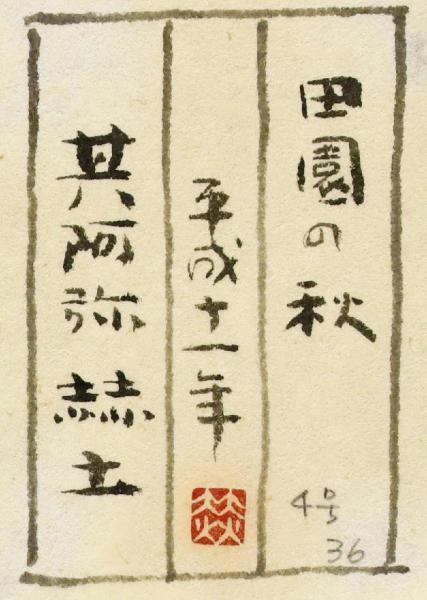 田園の秋
4号
36
平成十一年
其阿弥赫土